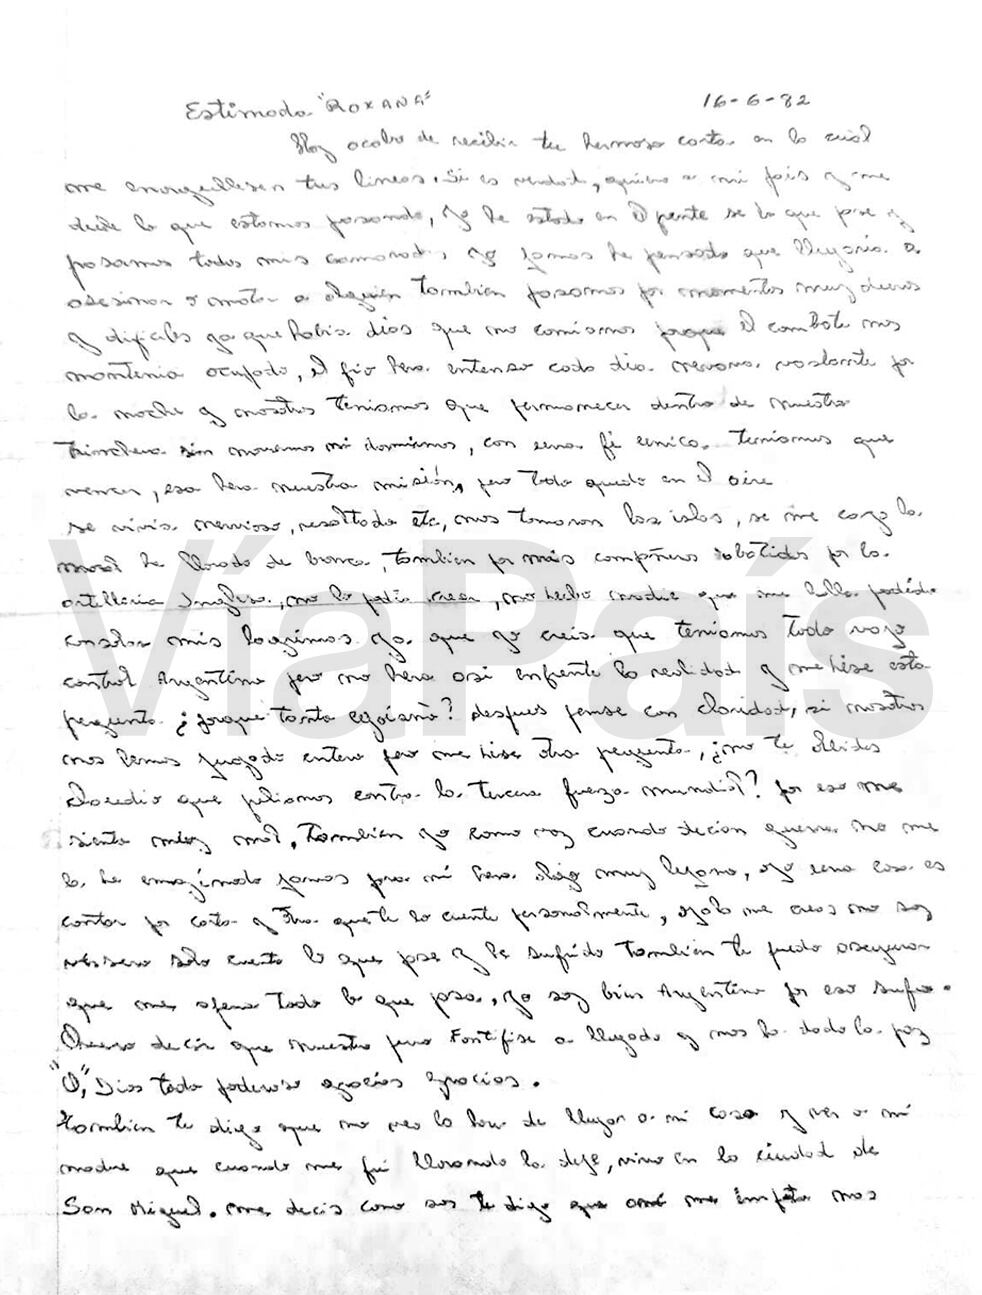 Estimada "ROXANA" 16-6-82
Hoy acabo de recibir tu hermosa carta en la cual
me enorgullesen tus lineas. Si es verdad, quiero a mi pais y me
duele lo que estamos pasando, yo he estado en el frente se lo que pase y
pasamos todos mis camaradas yo jamas he pensado que llegaria a
asesinar o matar a alguien tambien pasamos por momentos muy duros
y dificiles ya que habia dias que no comiamos porque el combate nos
mantenia ocupado, el frio hera intenso cada dia nevava vastante por
la noche y nosotros teniamos que permanecer dentro de nuestra
trinchera sin movernos ni dormirnos, con una fé unica teniamos que
vencer, esa hera nuestra misión, pero todo quedo en el aire
se vivia nervioso, resaltado etc, nos tomaron las islas, se me cayo la
moral he llorado de bronca, tambien por mis compañeros abatidos por la
artilleria Inglesa, no lo podia creer, no hubo nadie que me halla podido
consolar mis lagrimas ya que yo creia que teniamos todo vajo
control Argentino pero no hera asi enfrente la realidad y me hise esta
pregunta ¿porque tanto egoismo? despues pense con claridad, si nosotros
nos hemos jugado entero pero me hise otra pregunta, ¿no te olvidas
Claudio que peliamos contra la tercera fuerza mundial? por eso me
siento muy mal. Tambien yo como voz cuando decian guerra no me
la he emaginado jamas para mi hera algo muy lejano, yo una cosa es
contar por carta y otra que te lo cuente personalmente, ojala me creas no soy
solo cuento lo que pase y he sufrido tambien te puedo asegurar
que me apena todo lo que pasa, yo soy bien Argentino por eso sufro.
Quiero decir que nuestro Pontifise a llegado y nos ha dado la paz
"O," Dios todo poderoso gracias gracias.
Tambien te digo que no veo la hora de llegar a mi casa y ver a mi
madre que cuando me fui llorando la deje, vivo en la ciudad de
San Miguel. me decis como sos te digo que me nos
VíaPaís